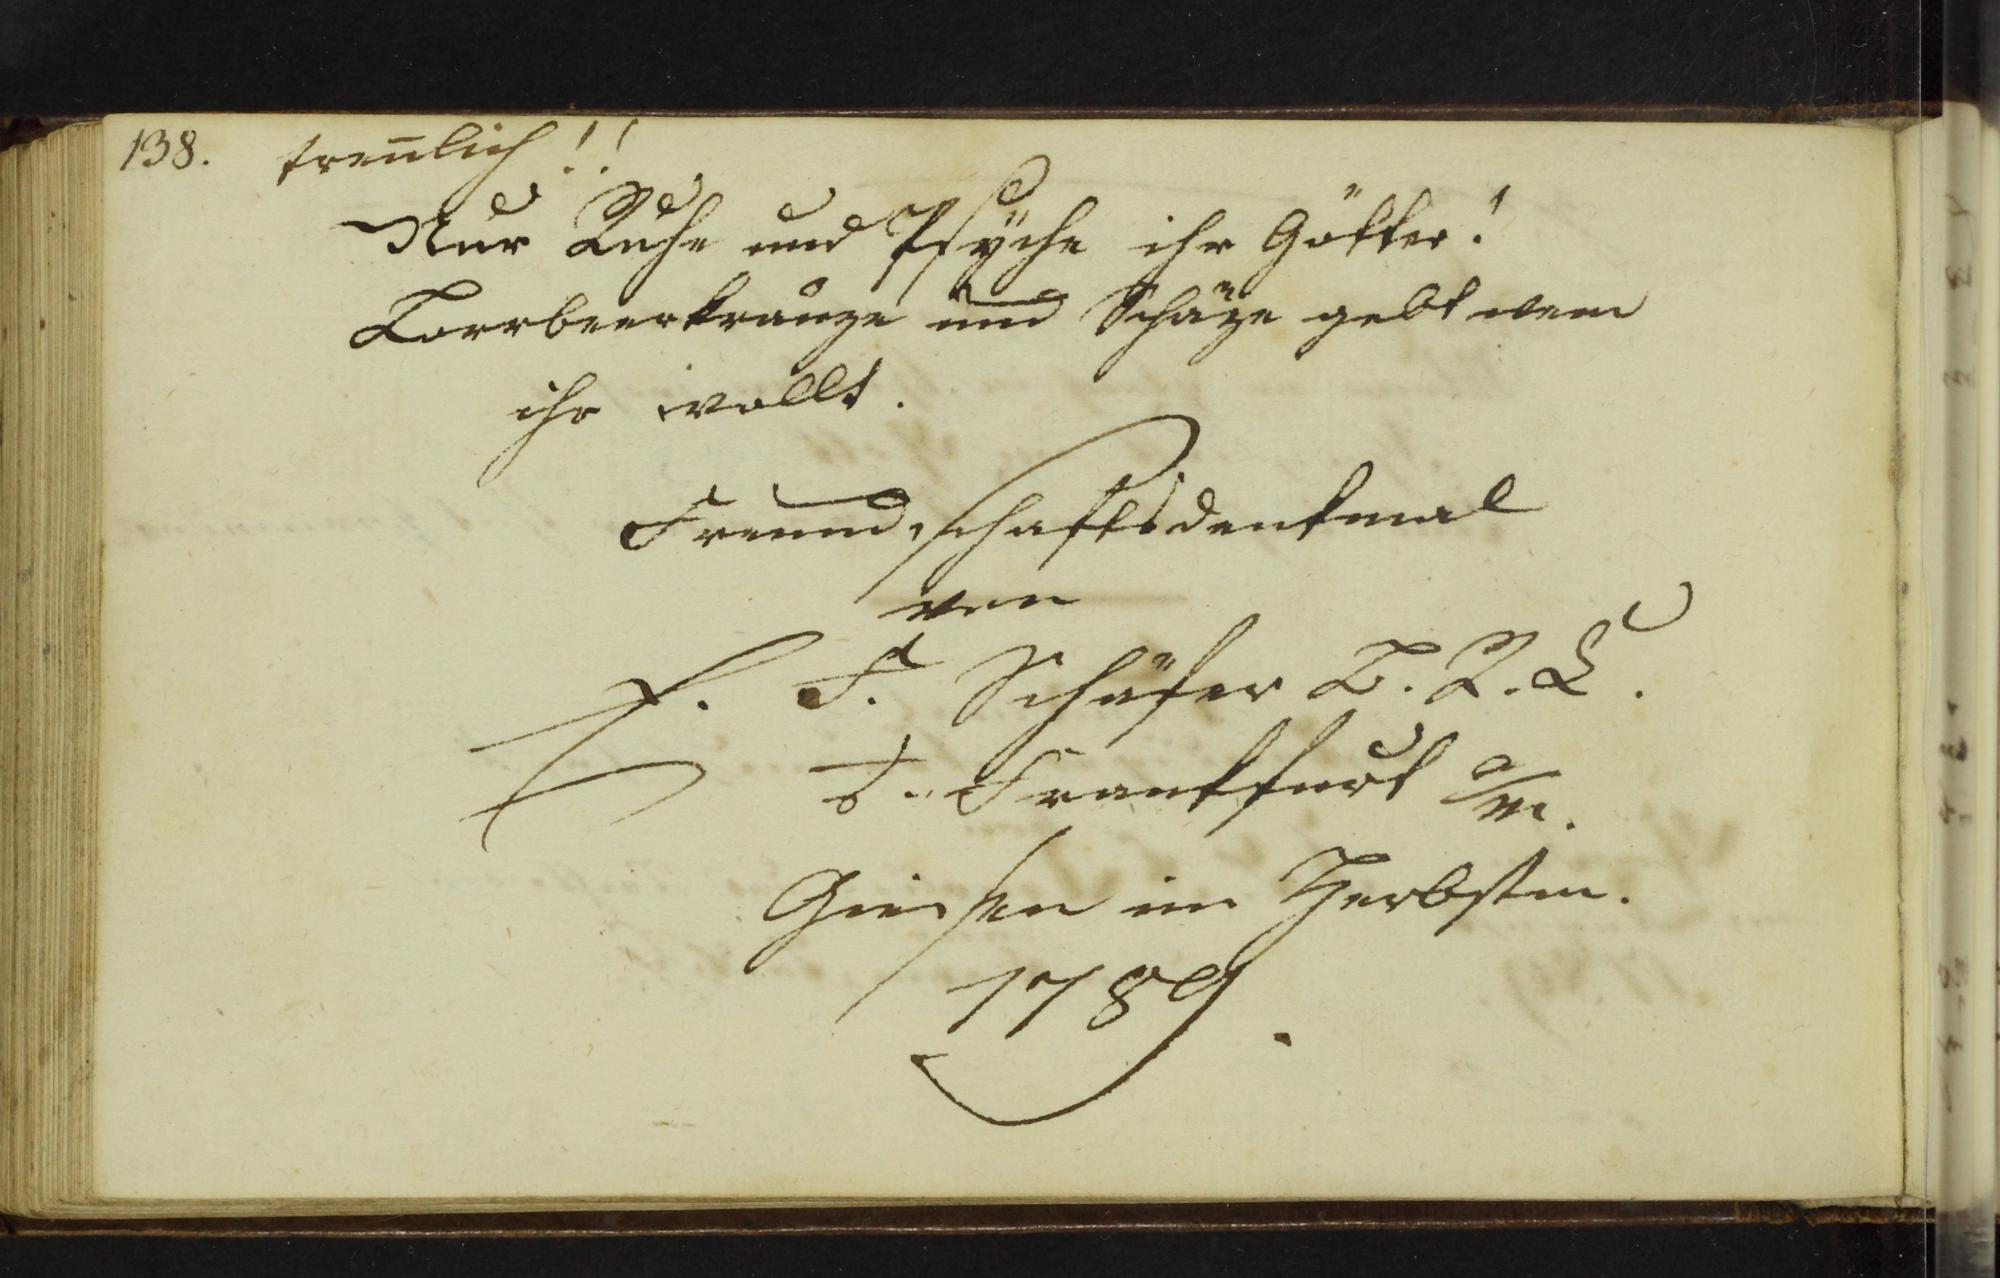 138. trennlich!!
Nur Ruhe und Psÿche ihr Götter!
Lorrbeerkränze und Schäze gebt wem
ihr wollt.
Freundschaftsdenkmal
von
F. Schäfer d. R. B.
v. Frankfurt a/m.
Giessen im Herbstm.
1789.